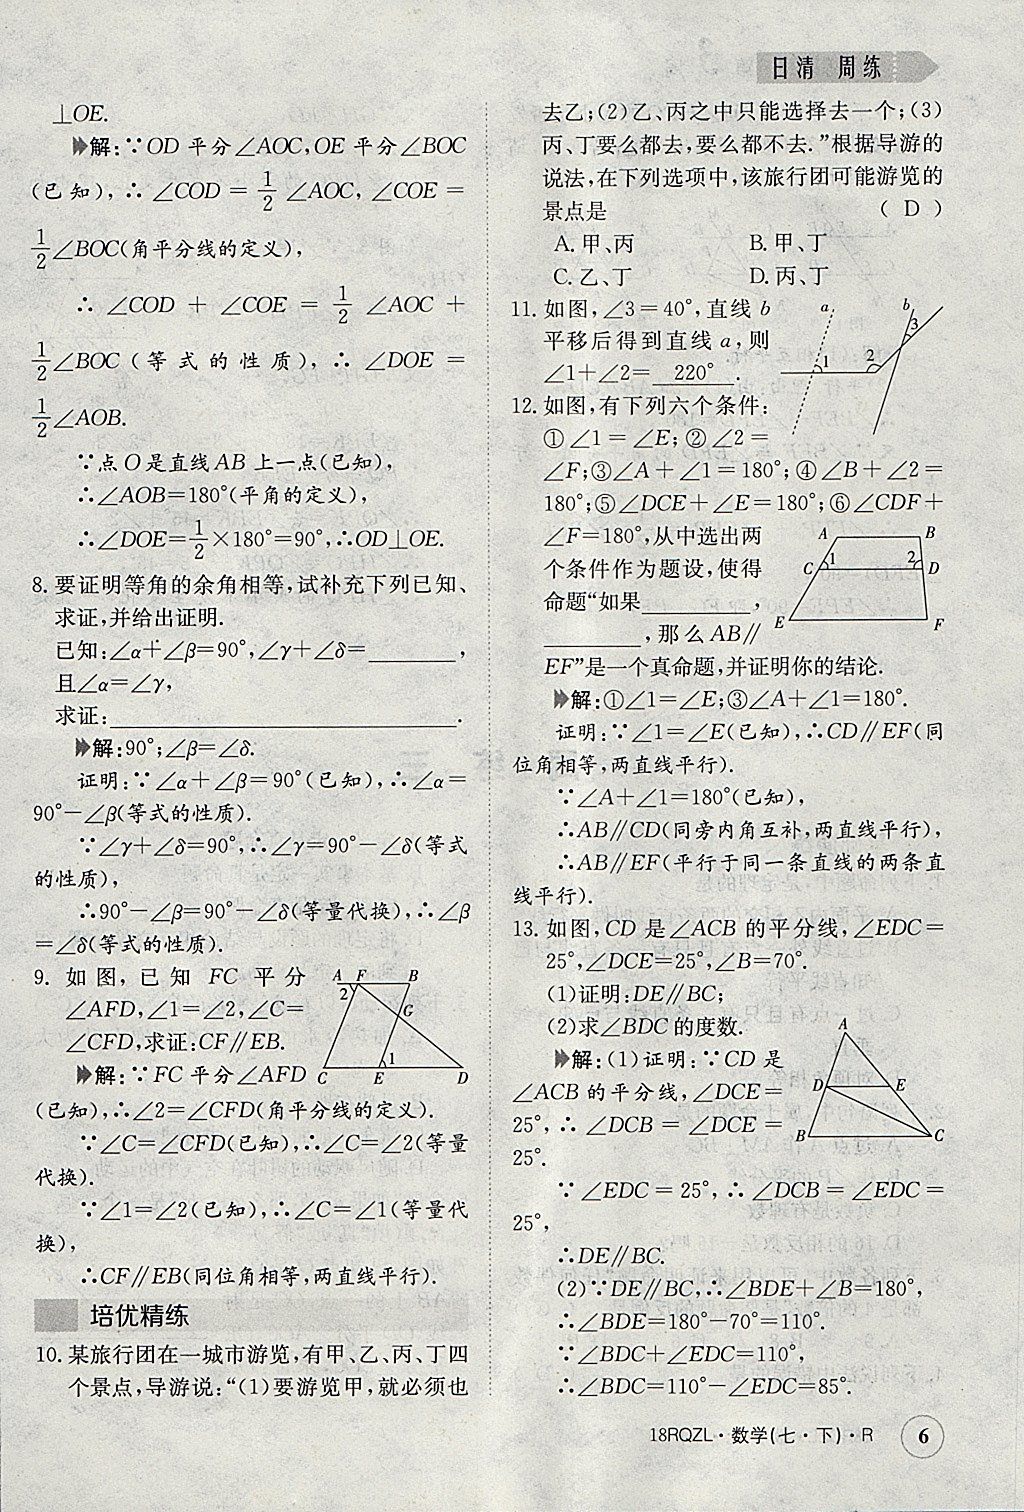 日清 周练
⊥OE.
解:∵OD平分∠AOC,OE平分∠BOC
(已知),∴∠COD=1/2∠AOC,∠COE=
1/2∠BOC(角平分线的定义),
∴∠COD+∠COE=1/2∠AOC+
1/2∠BOC(等式的性质),∴∠DOE=
1/2∠AOB.
∵点O是直线AB上一点(已知),
∴∠AOB=180°(平角的定义),
∴∠DOE=1/2×180°=90°,∴OD⊥OE.
8.要证明等角的余角相等,试补充下列已知、
求证,并给出证明.
已知:∠α+∠β=90°,∠γ+∠δ=________,
且∠α=∠γ,
求证:________________________.
解:90°;∠β=∠δ.
证明:∵∠α+∠β=90°(已知),∴∠α=
90°-∠β(等式的性质).
∵∠γ+∠δ=90°,∴∠γ=90°-∠δ(等式
的性质),
∴90°-∠β=90°-∠δ(等量代换),∴∠β
=∠δ(等式的性质).
9.如图,已知FC平分
∠AFD,∠1=∠2,∠C=
∠CFD,求证:CF∥EB.
A F B
2
G
1
C E D
解:∵FC平分∠AFD
(已知),∴∠2=∠CFD(角平分线的定义).
∵∠C=∠CFD(已知),∴∠C=∠2(等量
代换).
∵∠1=∠2(已知),∴∠C=∠1(等量代
换),
∴CF∥EB(同位角相等,两直线平行).
培优精练
10.某旅行团在一城市游览,有甲、乙、丙、丁四
个景点,导游说:“(1)要游览甲,就必须也
去乙;(2)乙、丙之中只能选择去一个;(3)
丙、丁要么都去,要么都不去.”根据导游的
说法,在下列选项中,该旅行团可能游览的
景点是 ( D )
A.甲、丙 B.甲、丁
C.乙、丁 D.丙、丁
11.如图,∠3=40°,直线b
平移后得到直线a,则
∠1+∠2=220°.
a b
3
1 2
12.如图,有下列六个条件:
①∠1=∠E;②∠2=
∠F;③∠A+∠1=180°;④∠B+∠2=
180°;⑤∠DCE+∠E=180°;⑥∠CDF+
∠F=180°,从中选出两
个条件作为题设,使得
命题“如果________,
________,那么AB∥
EF”是一个真命题,并证明你的结论.
A B
C 1 2 D
E F
解:①∠1=∠E;③∠A+∠1=180°.
证明:∵∠1=∠E(已知),∴CD∥EF(同
位角相等,两直线平行).
∵∠A+∠1=180°(已知),
∴AB∥CD(同旁内角互补,两直线平行),
∴AB∥EF(平行于同一条直线的两条直
线平行).
13.如图,CD是∠ACB的平分线,∠EDC=
25°,∠DCE=25°,∠B=70°.
(1)证明:DE∥BC;
(2)求∠BDC的度数.
A
D E
B C
解:(1)证明:∵CD是
∠ACB的平分线,∠DCE=
25°,∴∠DCB=∠DCE=
25°.
∵∠EDC=25°,∴∠DCB=∠EDC=
25°,
∴DE∥BC.
(2)∵DE∥BC,∴∠BDE+∠B=180°,
∴∠BDE=180°-70°=110°.
∵∠BDC+∠EDC=110°,
∴∠BDC=110°-∠EDC=85°.
18RQZL·数学(七·下)·R 6